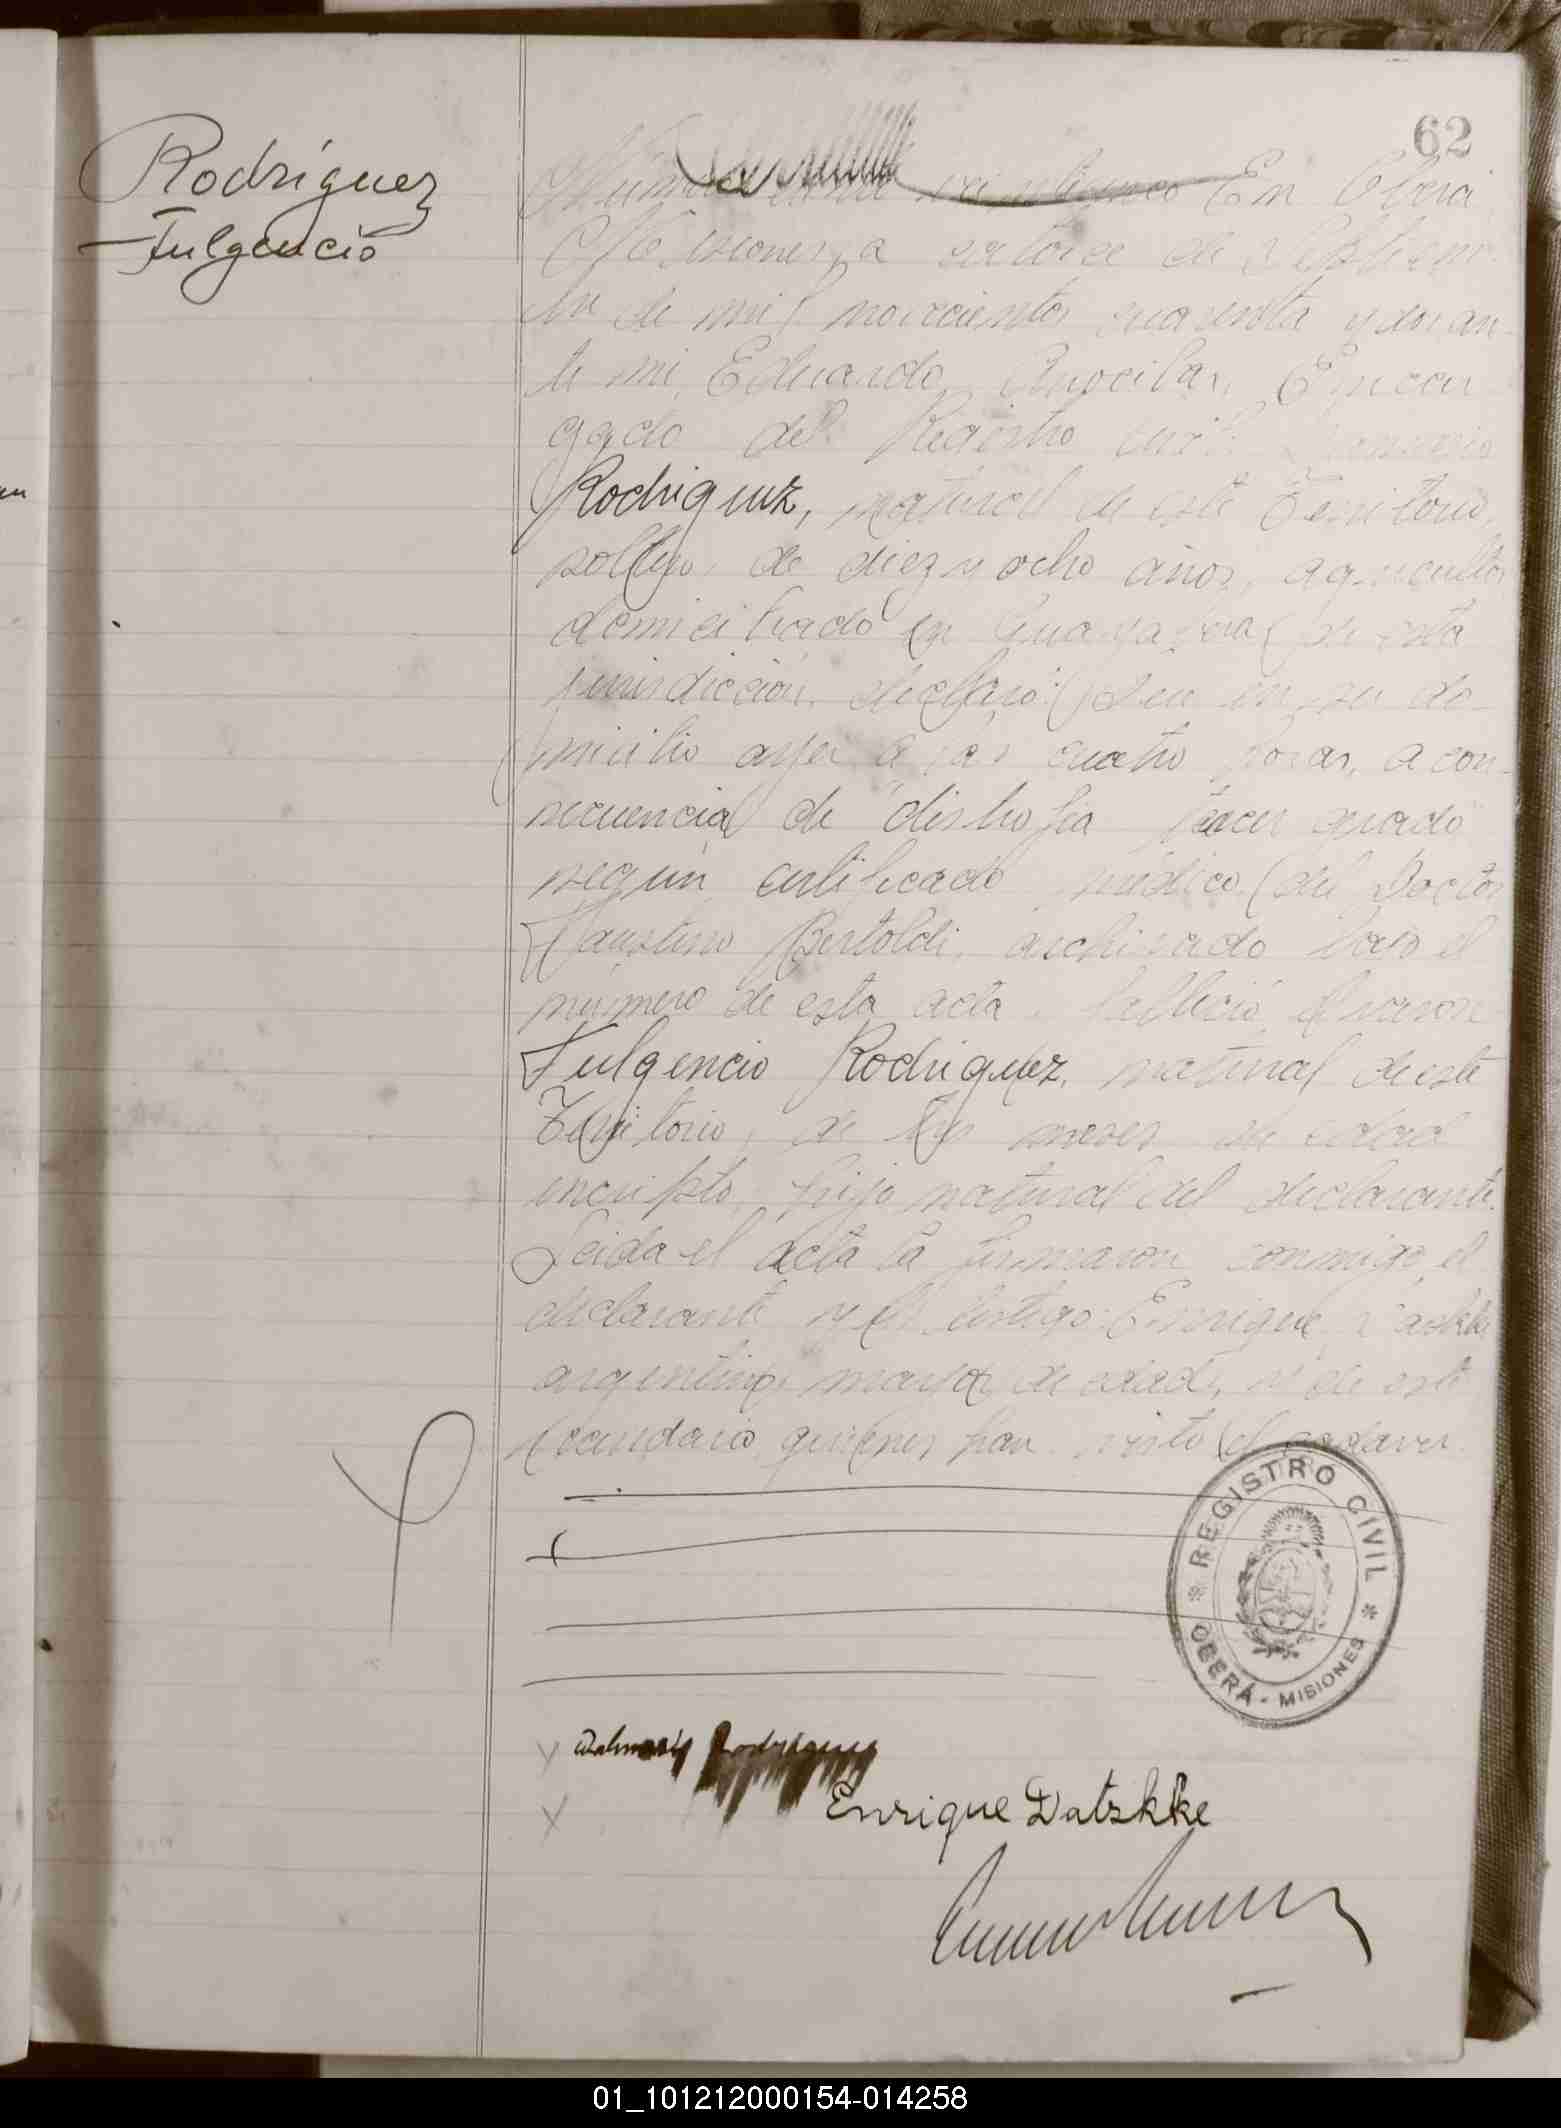 62
Rodríguez
Fulgencio
Número ciento veinticinco En Oberá
Misiones, a catorce de Septiem-
bre de mil novecientos cuarenta y dos, an-
te mi, Eduardo Encar-
gado del Registro Civil,
Rodriguez, natural de este Territorio,
soltero, de diez y ocho años, agricultor
domiciliado en de esta
jurisdicción, declaró: Que en su do-
micilio ayer a las cuatro horas, a con-
secuencia de distrofia tercer grado
según certificado médico del Doctor
Faustino Bertoldi, archivado bajo el
número de esta acta, falleció el varon
Fulgencio Rodriguez, natural de este
Territorio, de tres meses de edad
inscripto, hijo natural del declarante.
Leida el acta la firmaron conmigo el
declarante y el testigo: Enrique Datskke
argentino, mayor de edad, de este
vecindario, quienes han visto el cadaver.
REGISTRO CIVIL
OBERÁ - MISIONES
Rodriguez
Enrique Datzkke
01_101212000154-014258